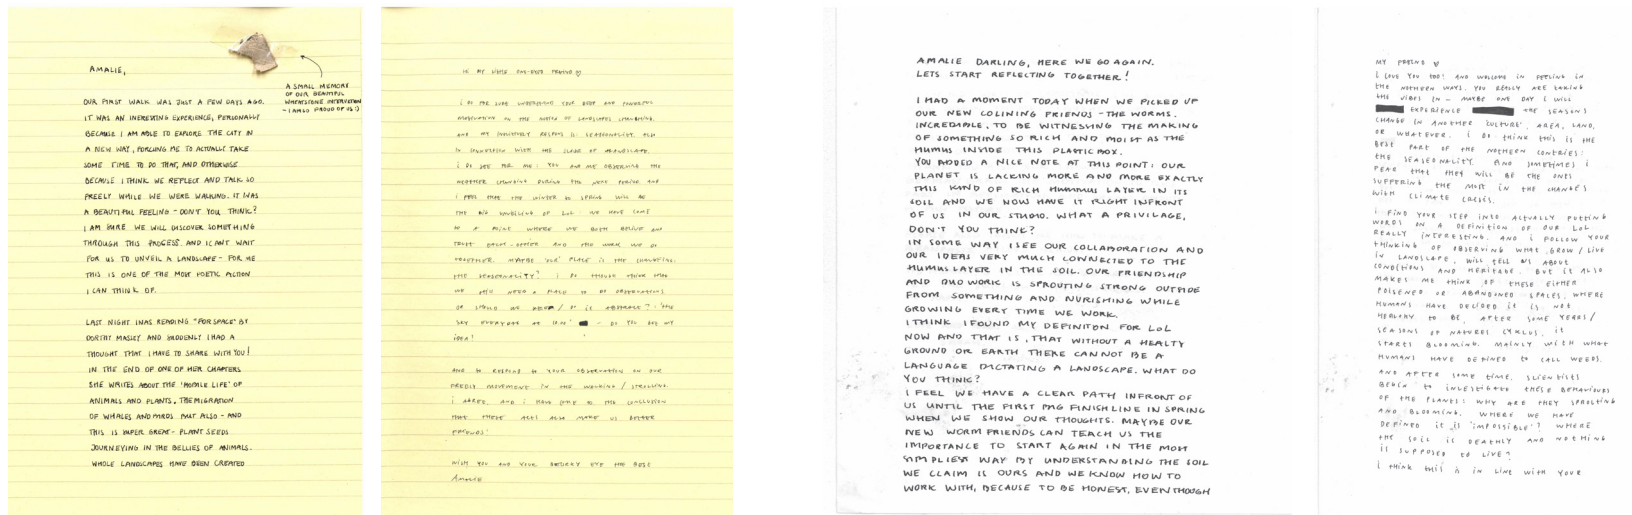 AMALIE,
A SMALL MEMORY
OF OUR BEAUTIFUL
WHEATSTONE INTERVENTION
- I AM SO PROUD OF US :)
OUR FIRST WALK WAS JUST A FEW DAYS AGO.
IT WAS AN INERESTING EXPERIENCE, PERSONALLY
BECAUSE I AM ABLE TO EXPLORE THE CITY IN
A NEW WAY, FORCING ME TO ACTUALLY TAKE
SOME TIME TO DO THAT, AND OTHERWISE
BECAUSE I THINK WE REFLECT AND TALK SO
FREELY WHILE WE WERE WALKING. IT WAS
A BEAUTIFUL FEELING - DON'T YOU THINK?
I AM SURE WE WILL DISCOVER SOMETHING
THROUGH THIS PROCESS. AND I CANT WAIT
FOR US TO UNVEIL A LANDSCAPE - FOR ME
THIS IS ONE OF THE MOST POETIC ACTION
I CAN THINK OF.
LAST NIGHT I WAS READING "FOR SPACE" BY
AND SUDDENLY I HAD A
THOUGHT THAT I HAVE TO SHARE WITH YOU!
IN THE END OF ONE OF HER CHAPTERS
SHE WRITES ABOUT THE 'MOBILE LIFE' OF
ANIMALS AND PLANTS, THE MIGRATION
OF WHALES AND BIRDS BUT ALSO - AND
THIS IS SUPER GREAT - PLANT SEEDS
JOURNEYING IN THE BELLIES OF ANIMALS.
WHOLE LANDSCAPES HAVE BEEN CREATED
HI MY LITTLE ONE-EYED FRIEND ♡
I DO SEE FOR ME: YOU AND ME OBSERVING THE
WEATHER CHANGING DURING THE NEXT PERIOD AND
I FEEL THAT THE WINTER TO SPRING WILL BE
TO A POINT WHERE WE BOTH BELIEVE AND
TRUST EACH-OTHER AND THE WORK WE DO
TOGETHER. MAYBE 'OUR' PLACE IS THE CHANGING.
THE SEASONALITY? I DO THOUGH THINK THAT
IDEA!
AND TO RESPOND TO YOUR OBSERVATION ON OUR
MOVEMENT IN THE WALKING / STROLLING.
I AGREE, AND I HAVE COME TO THE CONCLUSION
THAT THESE ACTS ALSO MAKE US BETTER
FRIENDS!
WISH YOU AND YOUR EYE THE BEST
AMALIE
AMALIE DARLING, HERE WE GO AGAIN.
LETS START REFLECTING TOGETHER!
I HAD A MOMENT TODAY WHEN WE PICKED UP
OUR NEW COLINING FRIENDS - THE WORMS.
INCREDIBLE, TO BE WITNESSING THE MAKING
OF SOMETHING SO RICH AND MOIST AS THE
HUMUS INSIDE THIS PLASTIC BOX.
YOU ADDED A NICE NOTE AT THIS POINT: OUR
PLANET IS LACKING MORE AND MORE EXACTLY
THIS KIND OF RICH HUMMUS LAYER IN ITS
SOIL AND WE NOW HAVE IT RIGHT INFRONT
OF US IN OUR STUDIO. WHAT A PRIVILAGE,
DON'T YOU THINK?
IN SOME WAY I SEE OUR COLLABORATION AND
OUR IDEAS VERY MUCH CONNECTED TO THE
HUMUS LAYER IN THE SOIL. OUR FRIENDSHIP
AND DUO WORK IS SPROUTING STRONG OUTSIDE
FROM SOMETHING AND NURISHING WHILE
GROWING EVERY TIME WE WORK.
I THINK I FOUND MY DEFINITON FOR LoL
NOW AND THAT IS, THAT WITHOUT A HEALTY
GROUND OR EARTH THERE CANNOT BE A
LANGUAGE DICTATING A LANDSCAPE. WHAT DO
YOU THINK?
I FEEL WE HAVE A CLEAR PATH INFRONT OF
US UNTIL THE FIRST FINISH LINE IN SPRING
WHEN WE SHOW OUR THOUGHTS. MAYBE OUR
NEW WORM FRIENDS CAN TEACH US THE
IMPORTANCE TO START AGAIN IN THE MOST
SIMPLIEST WAY BY UNDERSTANDING THE SOIL
WE CLAIM IS OURS AND WE KNOW HOW TO
WORK WITH, BECAUSE TO BE HONEST, EVEN THOUGH
MY FRIEND ♡
I LOVE YOU TOO! AND WELCOME IN FEELING IN
THE NOTHERN WAYS. YOU REALLY ARE TAKING
THE VIBES IN - MAYBE ONE DAY I WILL
EXPERIENCE THE SEASONS
CHANGE IN ANOTHER 'CULTURE', AREA, LAND,
OR WHATEVER. I DO THINK THIS IS THE
BEST PART OF THE NOTHERN CONTRIES:
THE SEASONALITY. AND SOMETIMES I
FEAR THAT THEY WILL BE THE ONES
SUFFERING THE MOST IN THE CHANGES
WITH CLIMATE CRISIS.
I FIND YOUR STEP INTO ACTUALLY PUTTING
WORDS ON A DEFINITION OF OUR LoL
REALLY INTERESTING. AND I FOLLOW YOUR
THINKING OF OBSERVING WHAT GROW / LIVE
IN LANDSCAPE, WILL TELL US ABOUT
CONDITIONS AND HERITAGE. BUT IT ALSO
MAKES ME THINK OF THESE EITHER
POISENED OR ABANDONED SPACES, WHERE
HUMANS HAVE DECIDED IT IS NOT
HEALTHY TO BE, AFTER SOME YEARS /
SEASONS OF NATURES CYKLUS, IT
STARTS BLOOMING. MAINLY WITH WHAT
HUMANS HAVE DEFINED TO CALL WEEDS.
AND AFTER SOME TIME, SCIENTISTS
BEGIN TO INVESTIGATE THESE BEHAVIOURS
OF THE PLANTS: WHY ARE THEY SPROUTING
AND BLOOMING, WHERE WE HAVE
DEFINED IT IS 'IMPOSSIBLE'? WHERE
THE SOIL IS DEATHLY AND NOTHING
IS SUPPOSED TO LIVE?
I THINK THIS IS IN LINE WITH YOUR